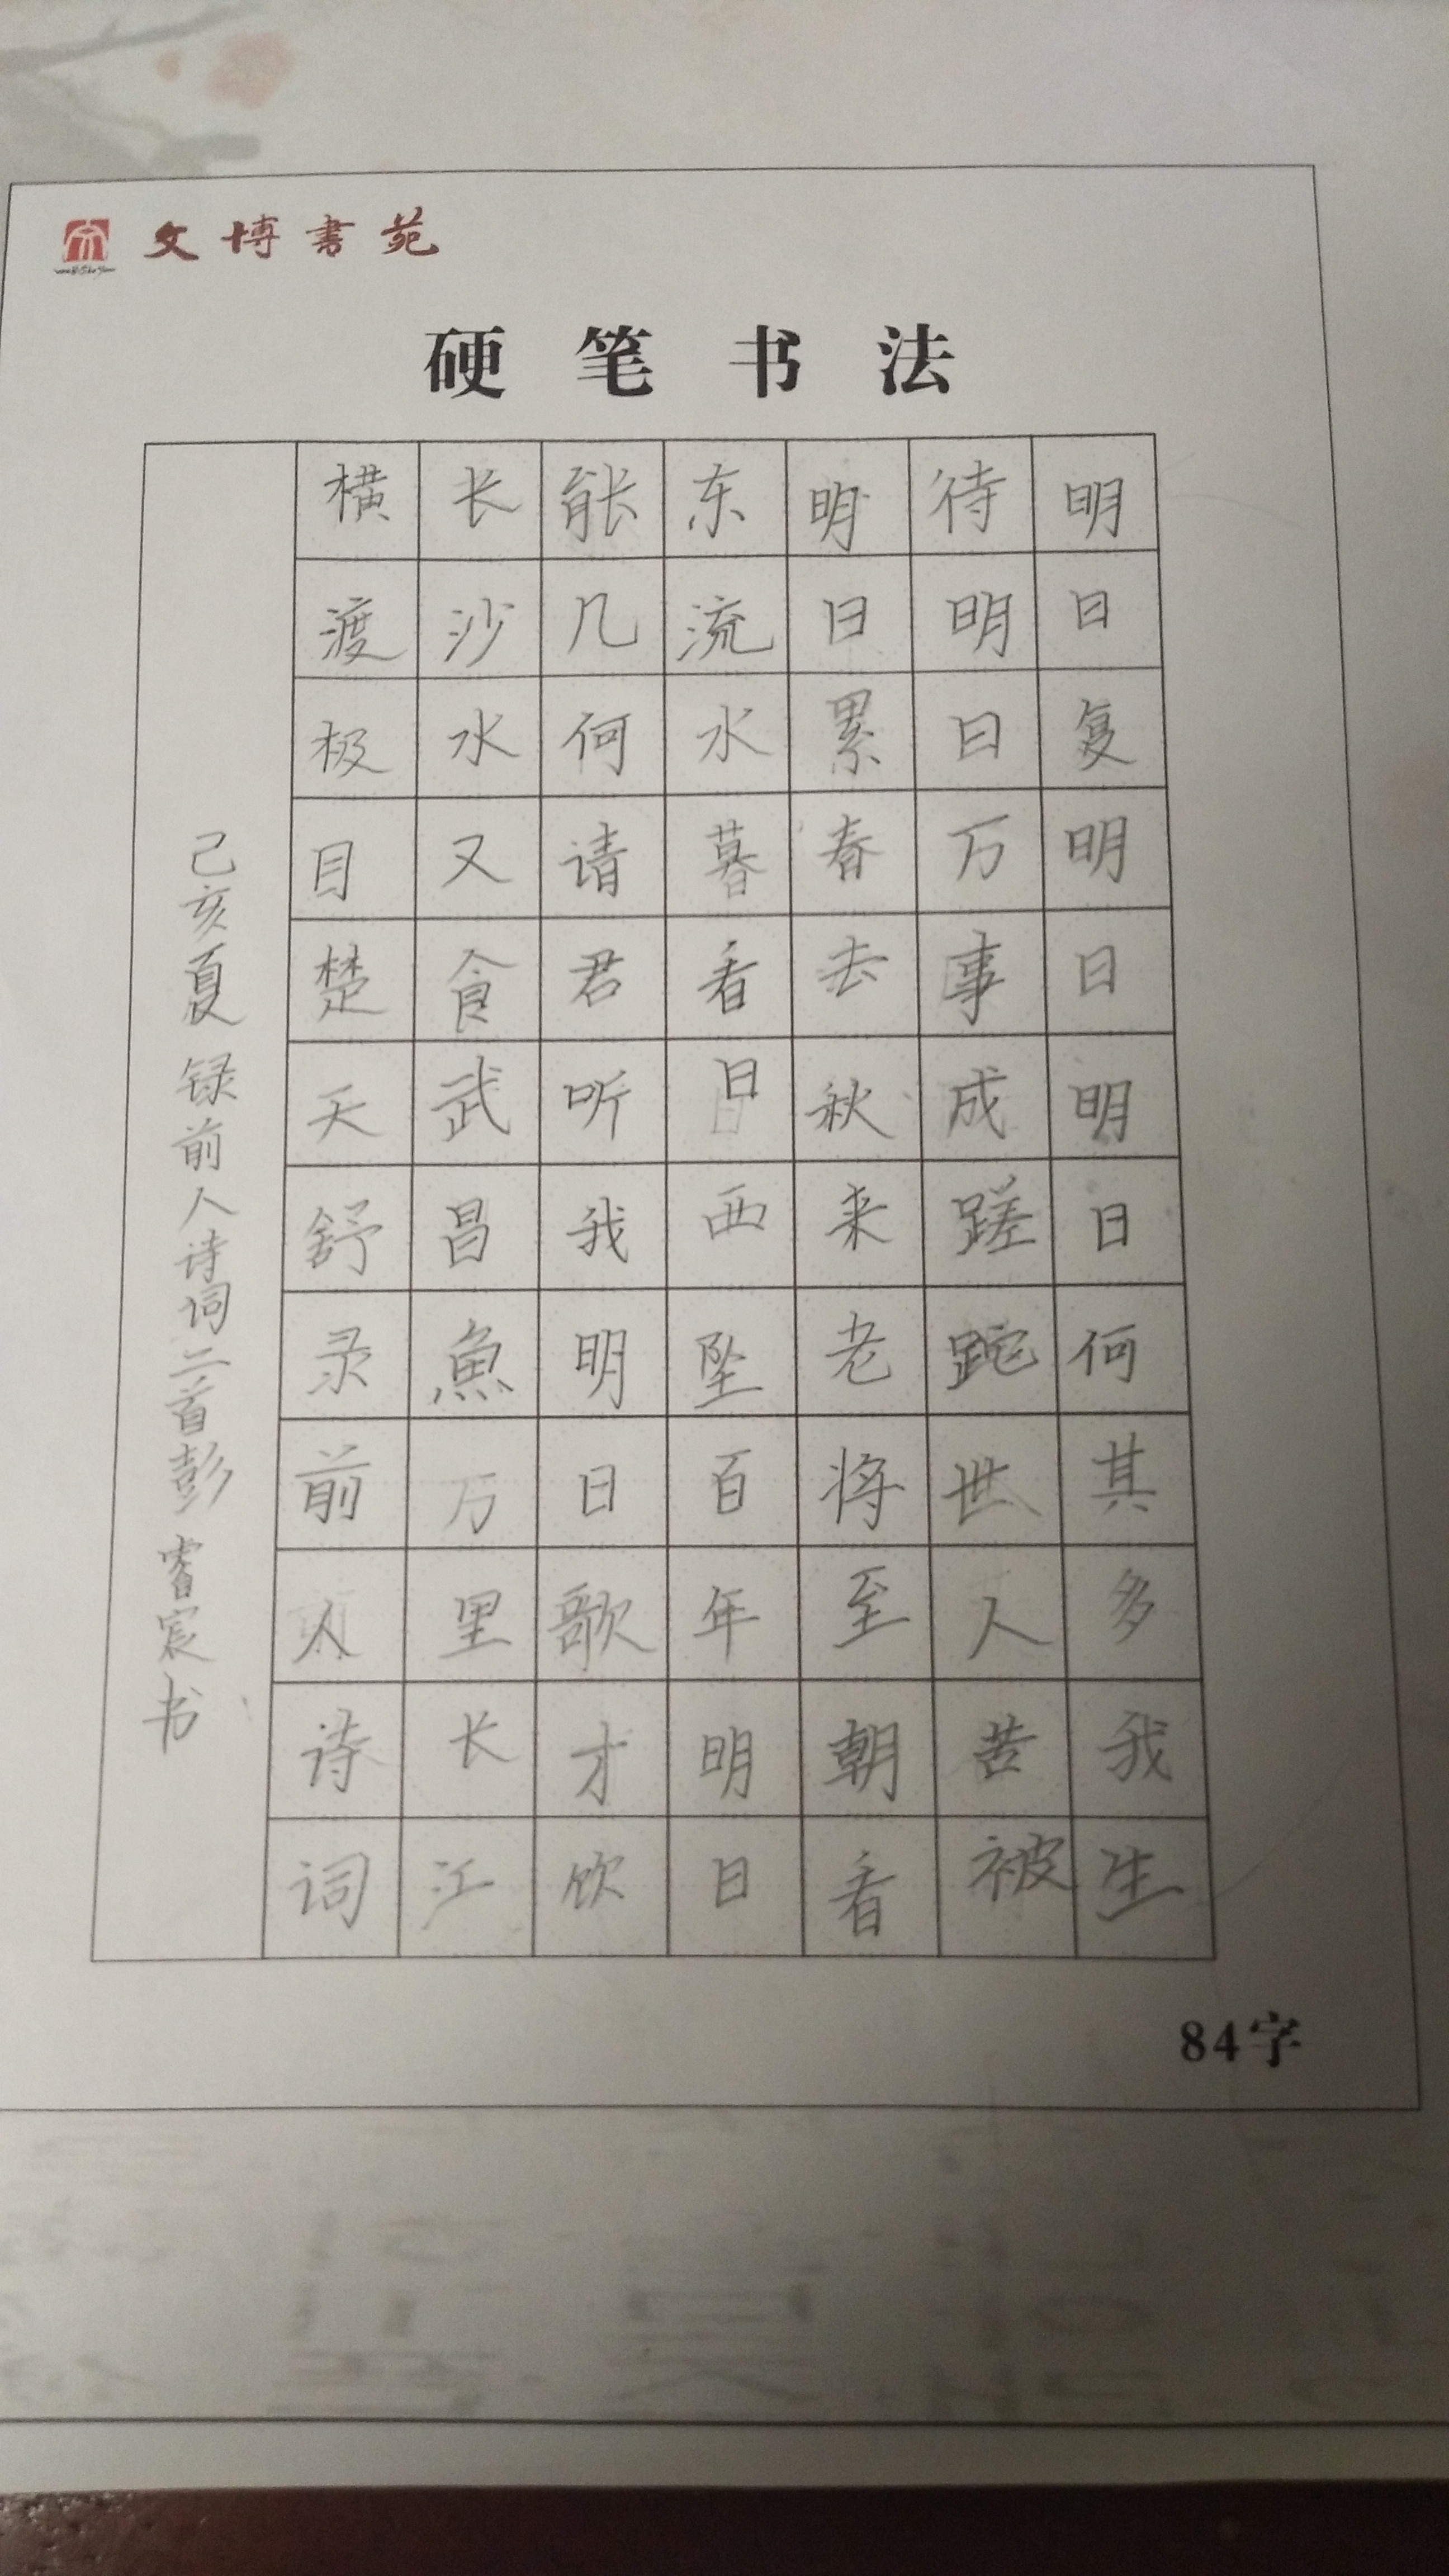 文博書苑
硬笔书法
明日复明日明日何其多我生
待明日万事成蹉跎世人苦被
明日累春去秋来老将至朝看
东流水暮看日西坠百年明日
能几何请君听我明日歌才饮
长沙水又食武昌魚万里长江
横渡极目楚天舒录前人诗词
己亥夏 录前人诗词二首彭睿宸书
84字